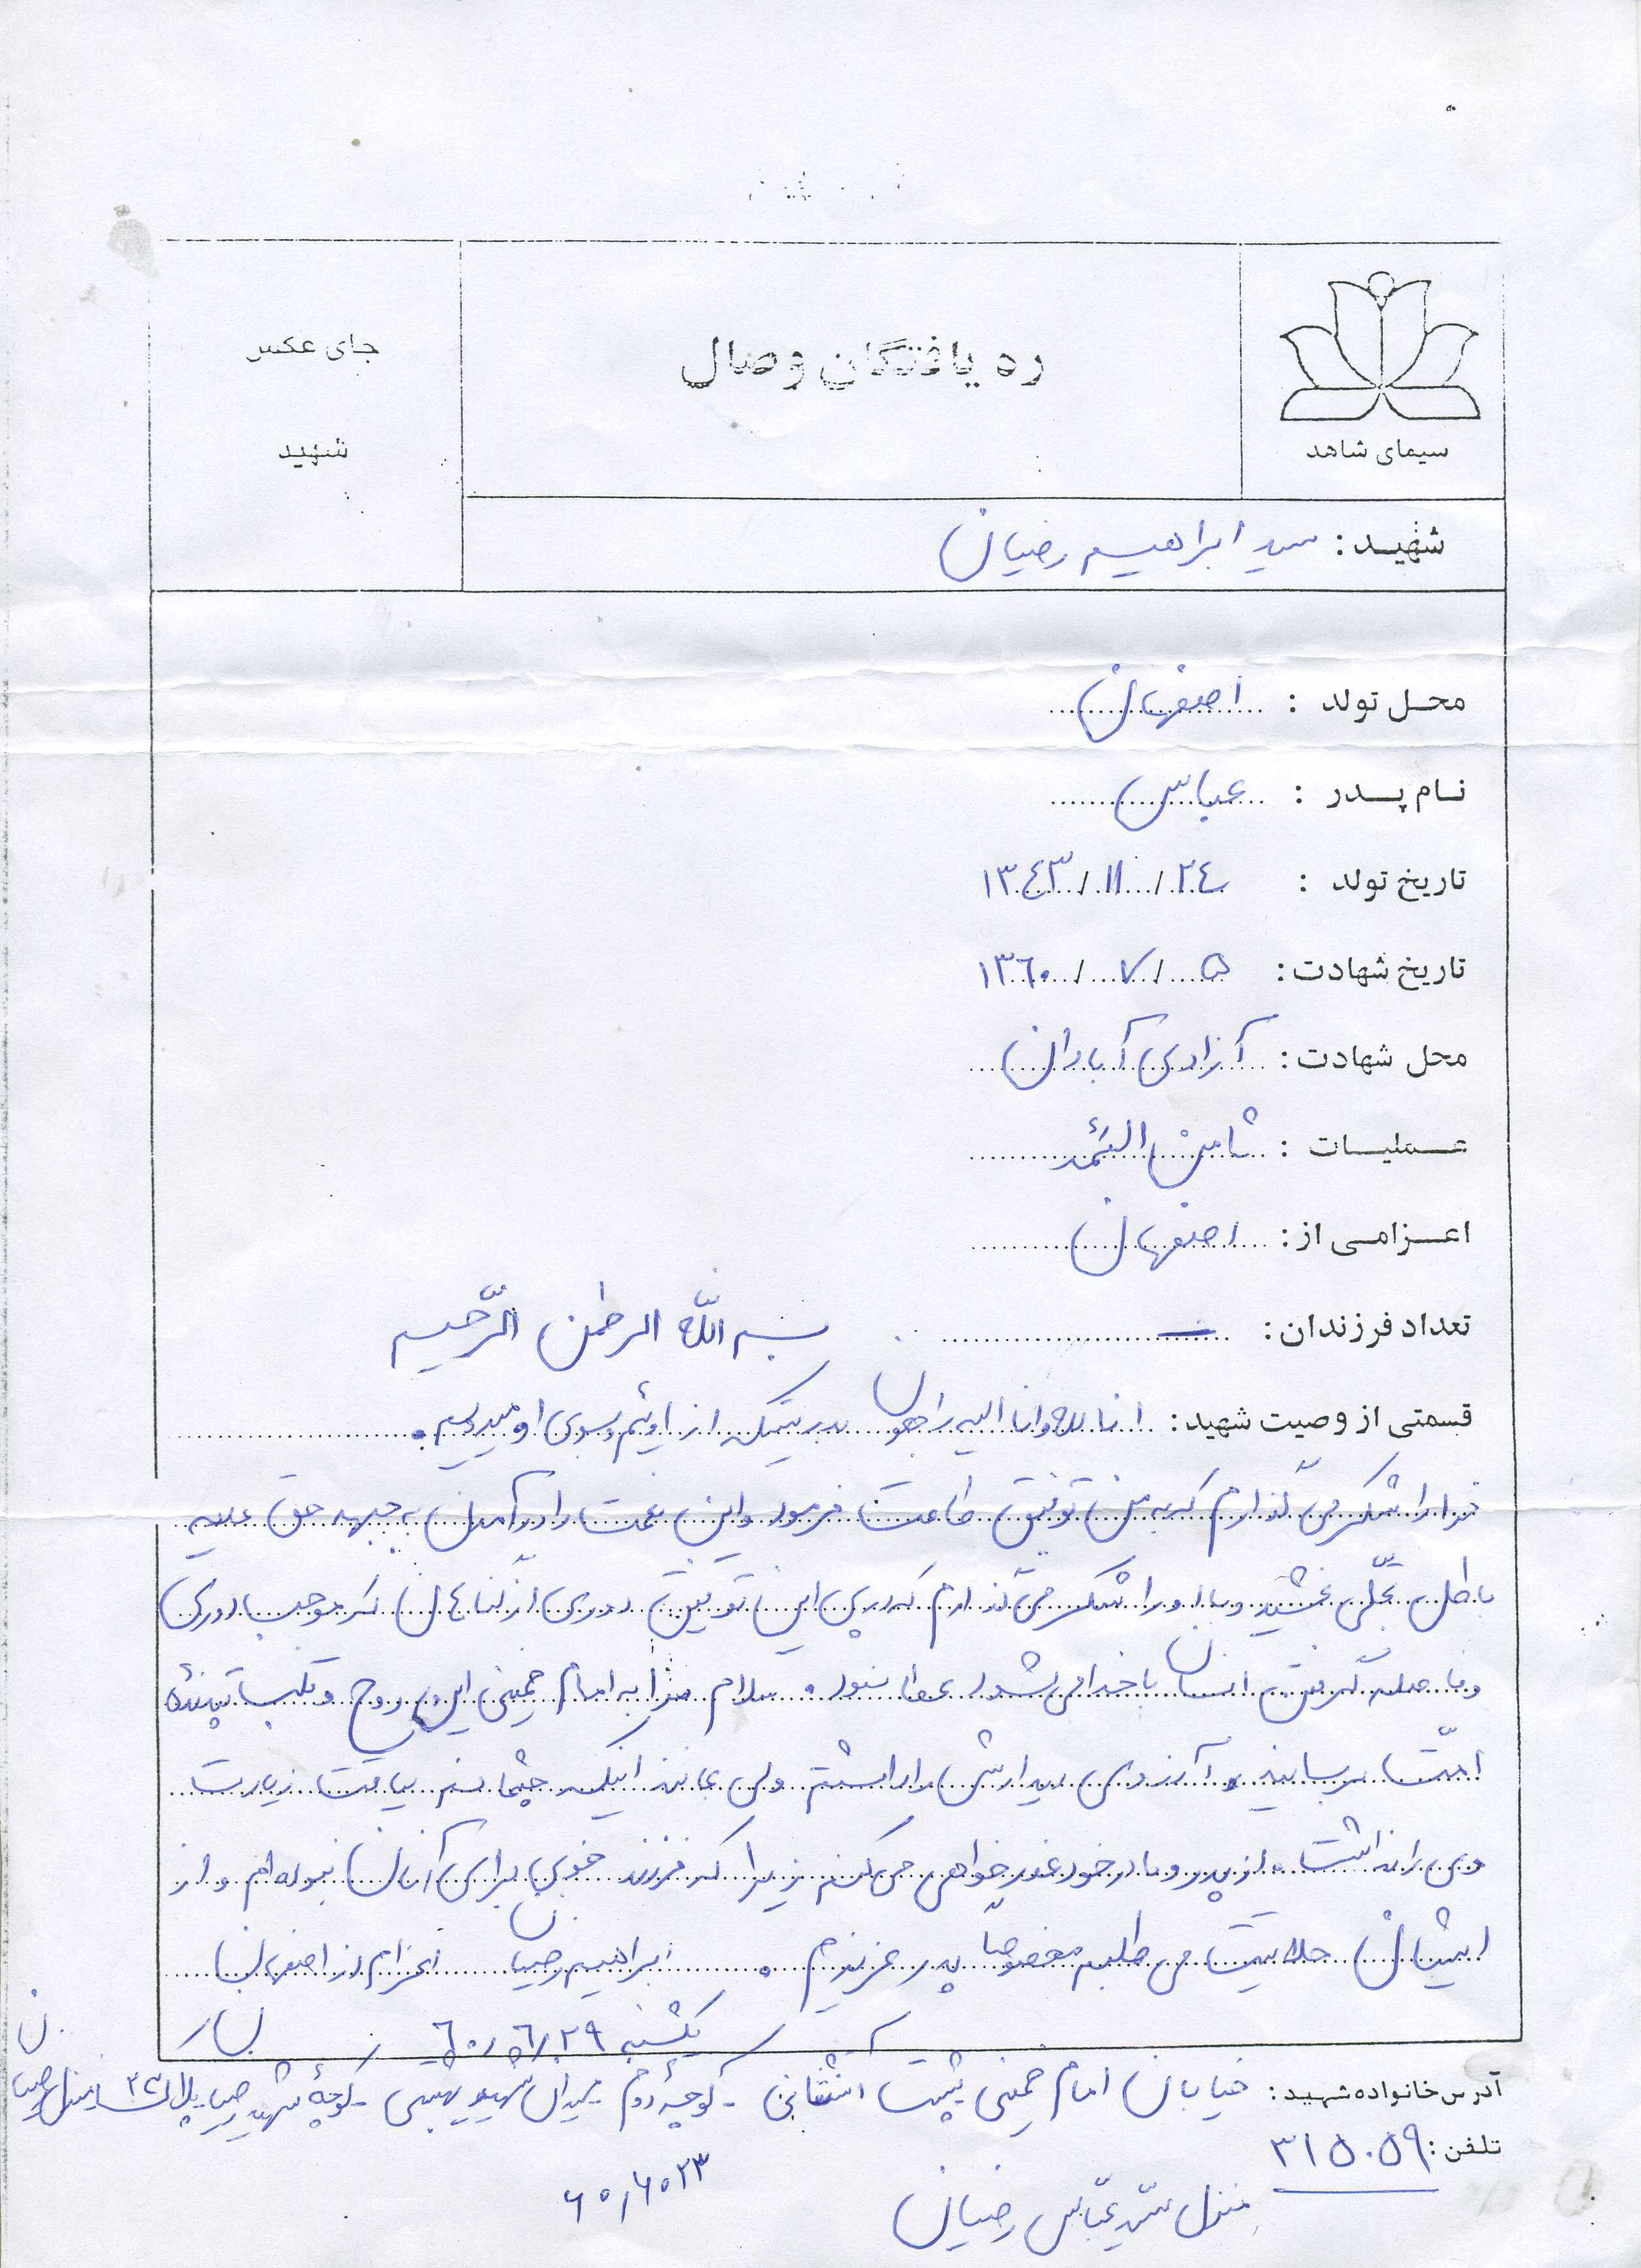 ره یافتگان وصال
جای عکس
شهید
سیمای شاهد
شهید : سید ابراهیم رضیان
محل تولد : اصفهان
نام پدر : عباس
تاریخ تولد : ۲٤ / ۱۱ / ۱۳٤۳
تاریخ شهادت : ۵ / ۷ / ۱۳٦۰
محل شهادت : آزادی آبادان
عملیات : ثامن الائمه
اعزامی از : اصفهان
تعداد فرزندان : —
بسم اللّه الرحمن الرّحیم
قسمتی از وصیت شهید : انا لله و انا الیه راجعون بدرستیکه از اوئیم و بسوی او میرویم.
خدا را شکر می گذارم که به من توفیق طاعت فرمود و این نعمت را در آمدن به جبهه حق علیه
باطل تجلّی بخشید و باز او را شکر می گذارم که در پی این توفیق دوری از گناهان که موجب دوری
و فاصله گرفتن انسان با خدا می شود عطا نمود. سلام مرا به امام خمینی این روح و قلب تپنده
امّت برسانید و آرزوی دیدارش را داشتم ولی عاند اینکه چشمانم لیاقت زیارت
وی را نداشت. از پدر و مادر خود عذرخواهی می کنم زیرا که فرزند خوبی برای آنان نبوده ام و از
ایشان حلالیت می طلبم مخصوصاً پدر عزیزم. ابراهیم رضیان اعزام از اصفهان
یکشنبه ٦۰/٦/۲۹
آدرس خانواده شهید : خیابان امام خمینی پشت آتشنشانی - کوچه دوم میدان شهید بهشتی - کوچهٔ شهید رضیان پلاک ۳۲ منزل رضیان
تلفن : ۳۱۵۰۵۹
منزل سیّد عبّاس رضیان